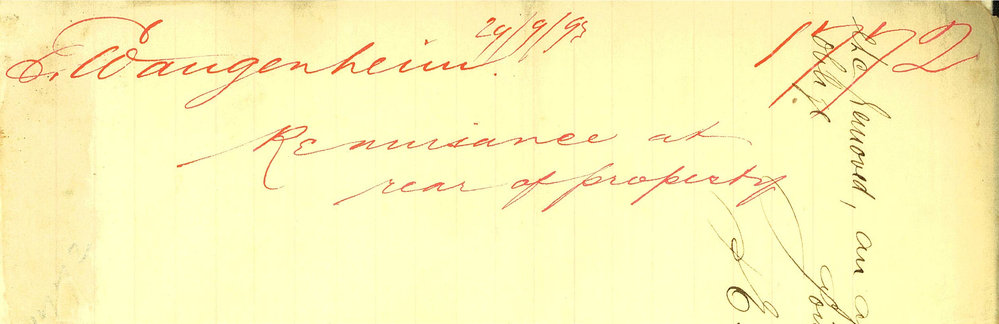 S. Wangenheim. 29/9/93 1772
Re nuisance at
rear of property
removed, an
oblige